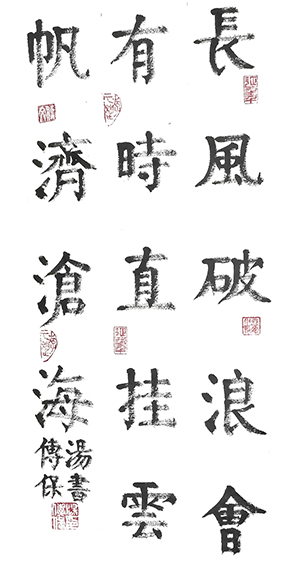 長風破浪會
有時直挂雲
帆濟滄海
湯書
傳保